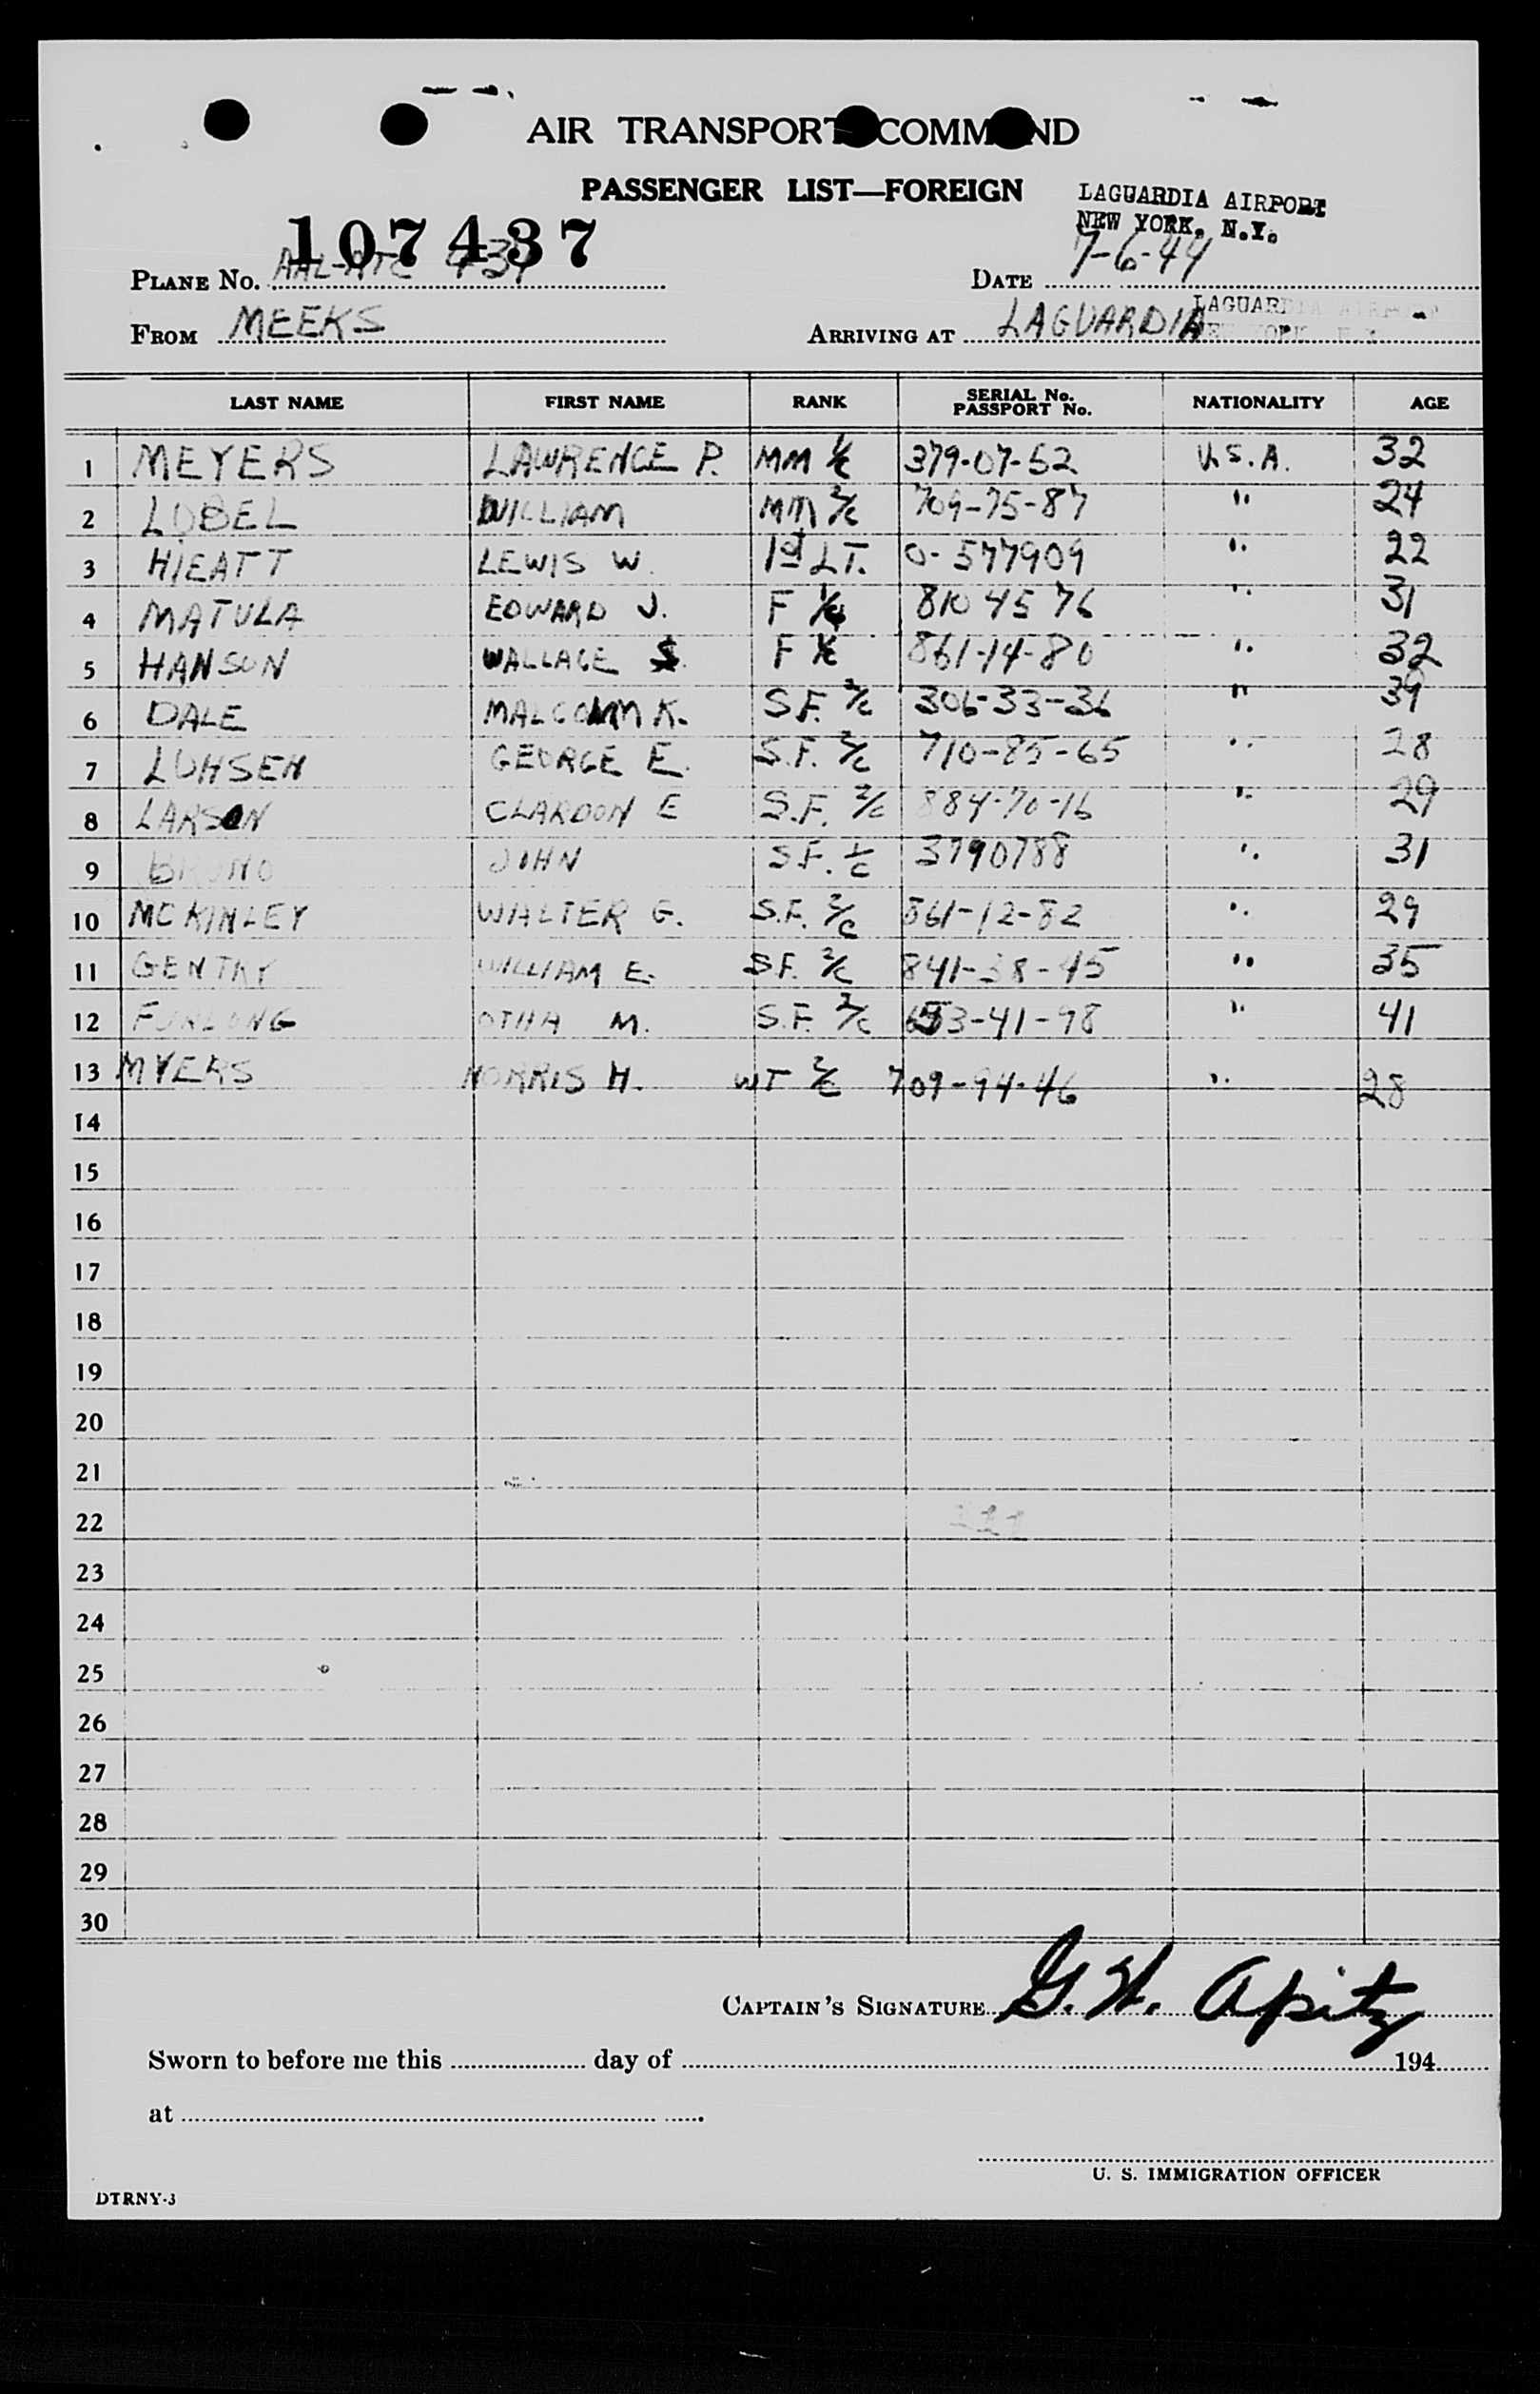 AIR TRANSPORT COMMAND
PASSENGER LIST—FOREIGN
LAGUARDIA AIRPORT
NEW YORK, N.Y.
107437
PLANE No. AAL-ATC
DATE 7-6-44
FROM MEEKS
ARRIVING AT LAGUARDIA
LAST NAME FIRST NAME RANK SERIAL No. PASSPORT No. NATIONALITY AGE
1 MEYERS LAWRENCE P. MM 1/C 379-07-52 U.S.A. 32
2 LUBEL WILLIAM MM 2/C 709-75-87 " 24
3 HIEATT LEWIS W. 1st LT. O-577909 " 22
4 MATULA EDWARD J. F 1/C 810 45 76 " 31
5 HANSON WALLACE S. F 1/C 861-14-80 " 32
6 DALE MALCOMM K. S.F. 2/C 306-33-36 " 39
7 LUHSEN GEORGE E. S.F. 2/C 710-85-65 " 28
8 LARSON CLARDON E S.F. 2/C 884-70-16 " 29
9 BRUNO JOHN S.F. 1/C 3790788 " 31
10 MCKINLEY WALTER G. S.F. 2/C 861-12-82 " 29
11 GENTRY WILLIAM E. S.F. 2/C 841-38-45 " 35
12 FURLONG OTHA M. S.F. 2/C 653-41-98 " 41
13 MYERS NORRIS H. WT 2/C 709-94-46 " 28
14
15
16
17
18
19
20
21
22
23
24
25
26
27
28
29
30
CAPTAIN'S SIGNATURE G. H. Apitz
Sworn to before me this day of 194
at
U. S. IMMIGRATION OFFICER
DTRNY-3